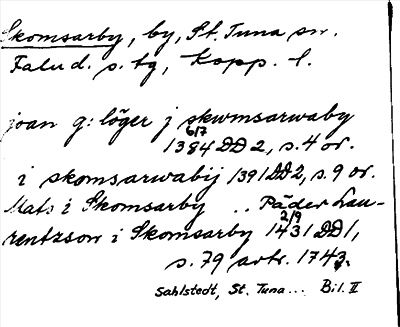 Skomsarby, by, St. Tuna sn.
Falu d. s. tg, Kopp. l.
joan g: löger j skwmsarwaby
6/7
1384 DD 2, s. 4 or.
i skomsarwabij 1391 DD2, s. 9 or.
Mats i Skomsarby .. Päder Lau-
rentzson i Skomsarby 2/9 1431 DD1,
s. 79 avtr. 1743.
Sahlstedt, St. Tuna... Bil. II